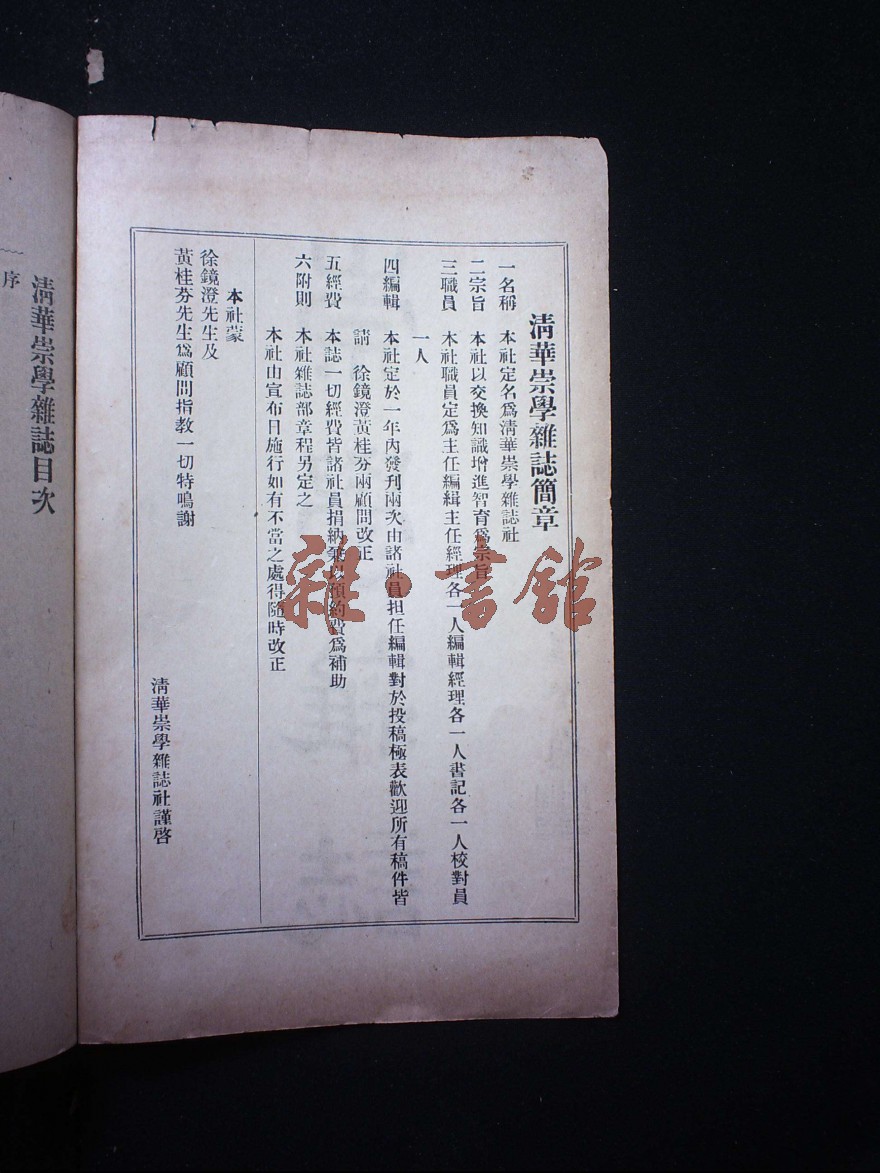 清華崇學雜誌簡章
一名稱 本社定名爲清華崇學雜誌社
二宗旨 本社以交換知識增進智育爲宗旨
三職員 本社職員定爲主任編緝主任經理各一人編輯經理各一人書記各一人校對員
一人
四編輯 本社定於一年內發刊兩次由諸社員担任編輯對於投稿極表歡迎所有稿件皆
請 徐鏡澄黃桂芬兩顧問改正
五經費 本誌一切經費皆諸社員捐納兼以預約費爲補助
六附則 本社雜誌部章程另定之
本社由宣布日施行如有不當之處得隨時改正
本社蒙
徐鏡澄先生及
黃桂芬先生爲顧問指教一切特鳴謝
清華崇學雜誌社謹啓
清華崇學雜誌目次
序
雜·書館